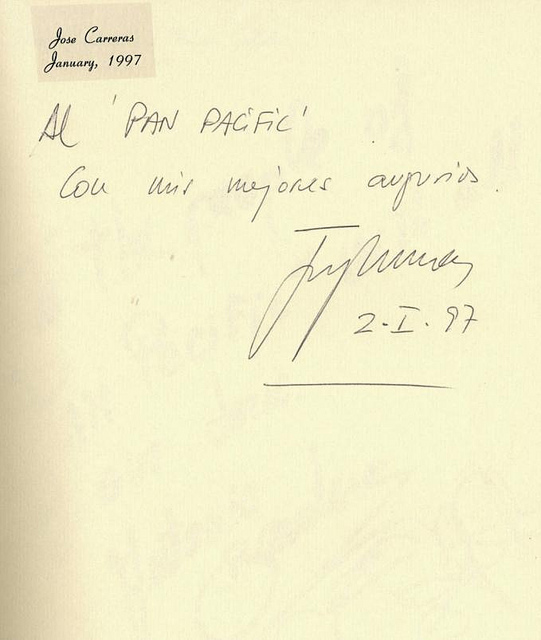 Jose Carreras
January, 1997
Al 'PAN PACIFIC'
Con mis mejores augurios.
2-I-97